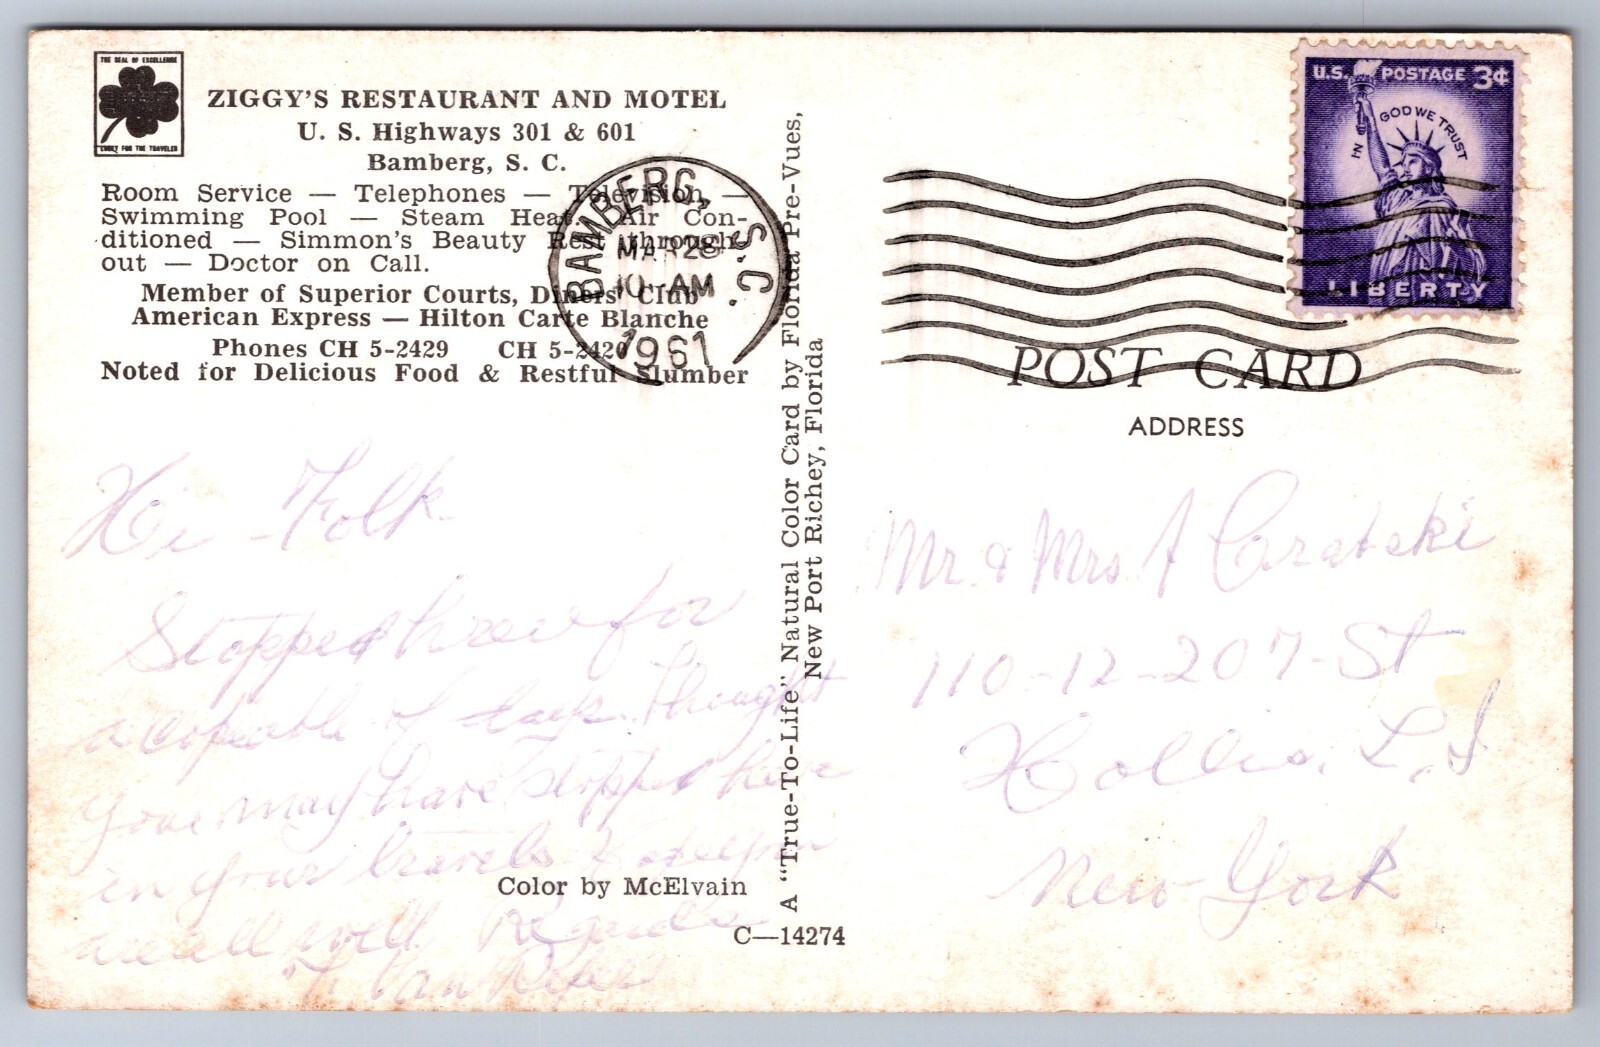 THE SEAL OF EXCELLENCE
COURT FOR THE TRAVELER
ZIGGY'S RESTAURANT AND MOTEL
U. S. Highways 301 & 601
Bamberg, S. C.
Room Service — Telephones — Television —
Swimming Pool — Steam Heat, Air Con-
ditioned — Simmon's Beauty Rest through-
out — Doctor on Call.
Member of Superior Courts, Diners' Club
American Express — Hilton Carte Blanche
Phones CH 5-2429 CH 5-2420
Noted for Delicious Food & Restful Slumber
BAMBERG, S.C.
MAR 28
10 AM
1961
Hi Folk
Stopped here for
a copeable of days. Thought
youe may have stopped here
in your travels.
are all well Regards
Van
Color by McElvain
C—14274
A "True-To-Life" Natural Color Card by Florida Pre-Vues,
New Port Richey, Florida
U.S. POSTAGE 3¢
IN GOD WE TRUST
LIBERTY
POST CARD
ADDRESS
Mr. & Mrs A
110-12-207-St
Hollis, L.I
New York